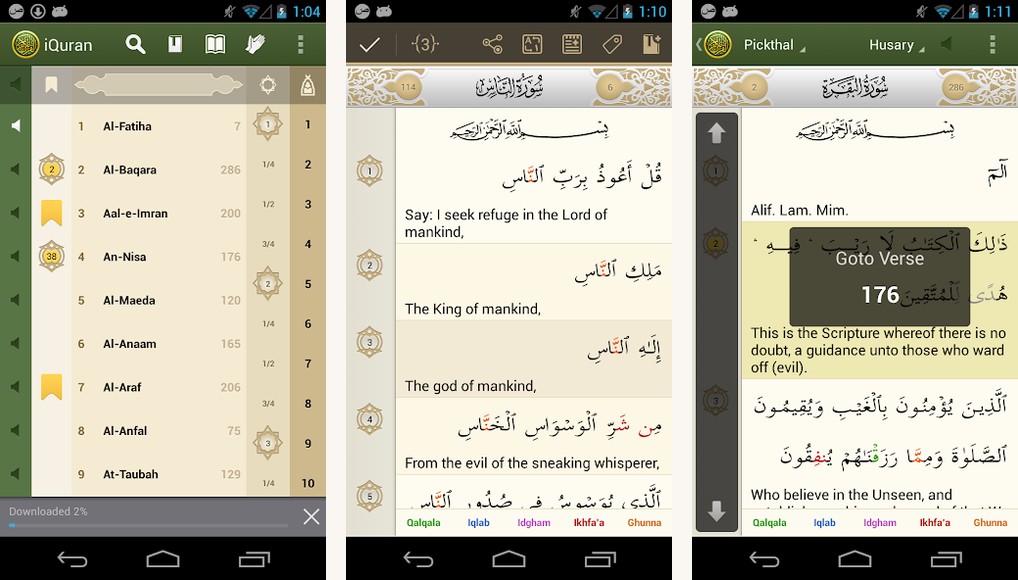 1:04
iQuran
1 Al-Fatiha 7
2 2 Al-Baqara 286
3 Aal-e-Imran 200
38 4 An-Nisa 176
5 Al-Maeda 120
6 Al-Anaam 165
7 Al-Araf 206
8 Al-Anfal 75
9 At-Taubah 129
1
1/4
1/2
3/4
2
1/4
1/2
3/4
3
1/4
1
2
3
4
5
6
7
8
9
10
Downloaded 2%
1:10
{3}
114 سُورَةُ النَّاسِ 6
بِسْمِ اللَّهِ الرَّحْمَٰنِ الرَّحِيمِ
1 قُلْ أَعُوذُ بِرَبِّ ٱلنَّاسِ
Say: I seek refuge in the Lord of
mankind,
2 مَلِكِ ٱلنَّاسِ
The King of mankind,
3 إِلَٰهِ ٱلنَّاسِ
The god of mankind,
4 مِن شَرِّ ٱلْوَسْوَاسِ ٱلْخَنَّاسِ
From the evil of the sneaking whisperer,
5 ٱلَّذِى يُوَسْوِسُ فِى صُدُورِ ٱلنَّاسِ
Qalqala Iqlab Idgham Ikhfa'a Ghunna
1:11
Pickthal Husary
2 سُورَةُ البَقَرَةِ 286
بِسْمِ اللَّهِ الرَّحْمَٰنِ الرَّحِيمِ
1 الٓمٓ
Alif. Lam. Mim.
2 ذَٰلِكَ ٱلْكِتَٰبُ لَا رَيْبَ ۛ فِيهِ ۛ
Goto Verse
176
هُدًى لِّلْمُتَّقِينَ
This is the Scripture whereof there is no
doubt, a guidance unto those who ward
off (evil).
3 ٱلَّذِينَ يُؤْمِنُونَ بِٱلْغَيْبِ وَيُقِيمُونَ
ٱلصَّلَوٰةَ وَمِمَّا رَزَقْنَٰهُمْ يُنفِقُونَ
Who believe in the Unseen, and
Qalqala Iqlab Idgham Ikhfa'a Ghunna